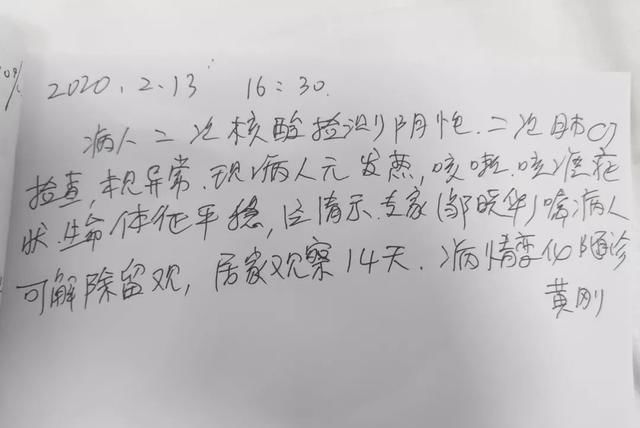 2020.2.13 16:30.
病人二次核酸捡测阴性.二次肺CT
捡查,未见异常.现病人无发热,咳嗽.咳痰症
状.生命体征平稳,应请示专家(邹晓华)嘱病人
可解除留观,居家观察14天.病情变化随诊
黄刚